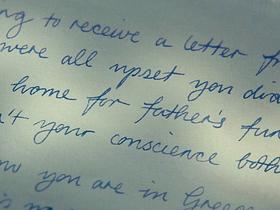 ng to receive a letter fr
were all upset you
home for father's fun
't your conscience both
you are in Greece